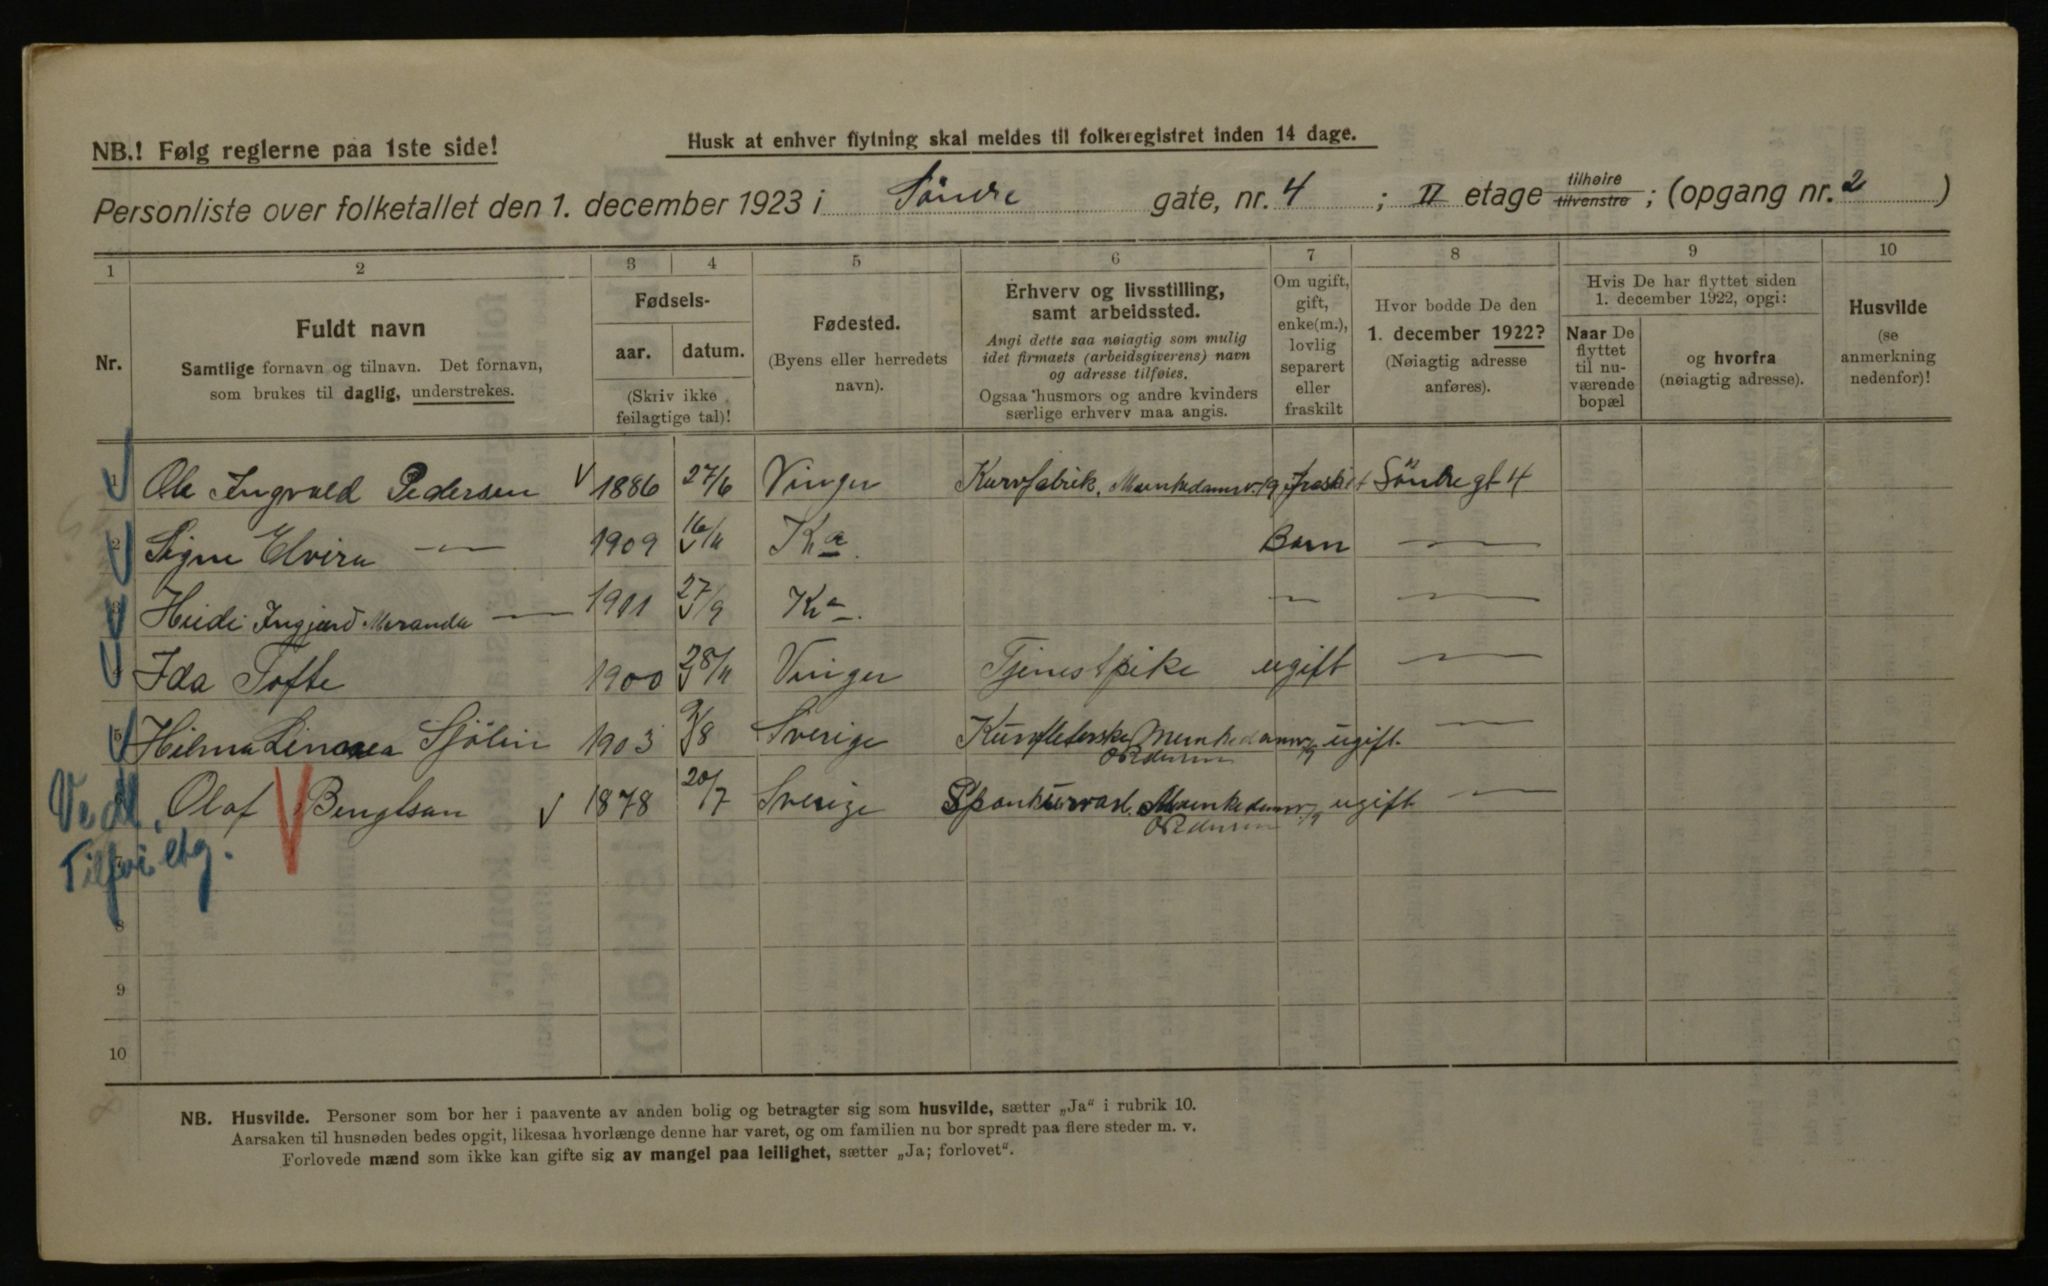 NB.! Følg reglerne paa 1ste side!
Husk at enhver flytning skal meldes til folkeregistret inden 14 dage.
Personliste over folketallet den 1. december 1923 i Söndre gate, nr. 4 ; II etage tilhøire tilvenstre ; (opgang nr. 2 )
1 2 3 4 5 6 7 8 9 10
Nr.
Fuldt navn
Samtlige fornavn og tilnavn. Det fornavn,
som brukes til daglig, understrekes.
Fødsels-
aar. datum.
(Skriv ikke
feilagtige tal)!
Fødested.
(Byens eller herredets
navn).
Erhverv og livsstilling,
samt arbeidssted.
Angi dette saa nøiagtig som mulig
idet firmaets (arbeidsgiverens) navn
og adresse tilføies.
Ogsaa husmors og andre kvinders
særlige erhverv maa angis.
Om ugift,
gift,
enke(m.),
lovlig
separert
eller
fraskilt
Hvor bodde De den
1. december 1922?
(Nøiagtig adresse
anføres).
Hvis De har flyttet siden
1. december 1922, opgi:
Naar De
flyttet
til nu-
værende
bopæl
og hvorfra
(nøiagtig adresse).
Husvilde
(se
anmerkning
nedenfor)!
1 Ole Ingvald Pedersen 1886 27/6 Vinger Kurvfabrik, Munkedamsv. 19 fraskilt Söndre gt 4
2 Signe Elvira — 1909 16/11 Kra. Barn —
3 Heidi Ingjerd Maranda — 1901 27/9 Kra. — —
4 Ida Tofte 1900 28/11 Vinger Tjenestpike ugift —
5 Hilma Linnea Sjölin 1903 9/8 Sverige Munkedamsv ugift. —
O Pedersen
Olof Bengtsan 1878 20/7 Sverige Munkedamsv ugift —
O Pedersen
Vedl.
8
9
10
NB. Husvilde. Personer som bor her i paavente av anden bolig og betragter sig som husvilde, sætter „Ja“ i rubrik 10.
Aarsaken til husnøden bedes opgit, likesaa hvorlænge denne har varet, og om familien nu bor spredt paa flere steder m. v.
Forlovede mænd som ikke kan gifte sig av mangel paa leilighet, sætter „Ja; forlovet“.